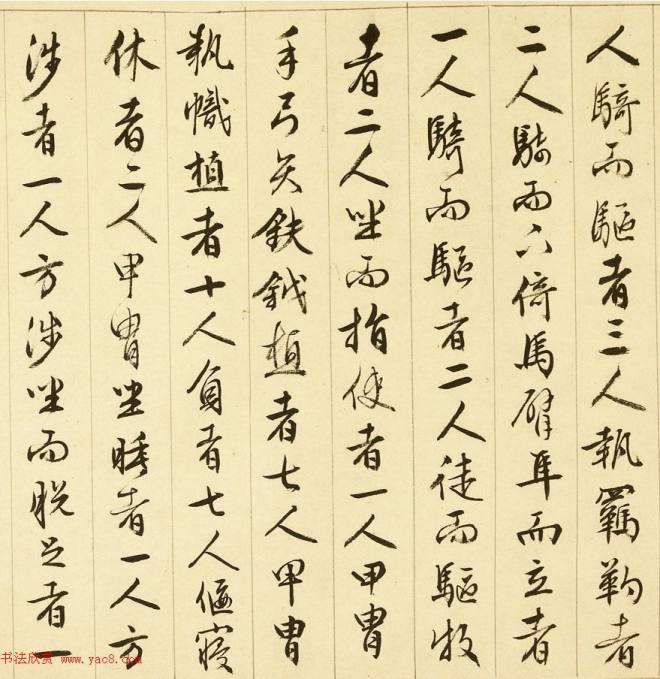 人騎而驅者三人執羈靮者
二人騎而下倚馬臂隼而立者
一人騎而驅者二人徒而驅牧
者二人坐而指使者一人甲冑
手弓矢鈇鉞植者七人甲冑
執幟植者十人負者七人偃寢
休者二人甲冑坐睡者一人方
涉者一人方涉坐而脫足者一
书法欣赏 www.yac8.com